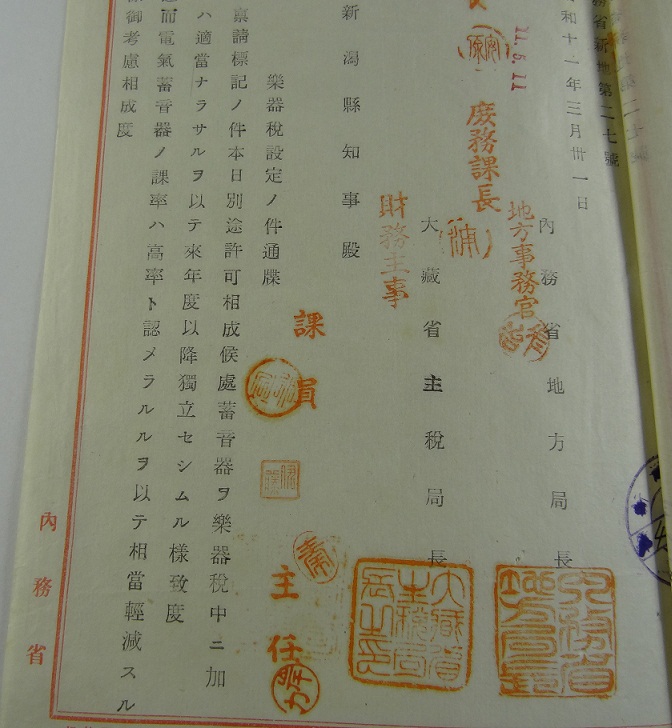 務省新地第二七號
和十一年三月卅一日
內務省地方局長
大藏省主稅局長
新潟縣知事殿
樂器稅設定ノ件通牒
稟請標記ノ件本日別途許可相成候處蓄音器ヲ樂器稅中ニ加
ハ適當ナラサルヲ以テ來年度以降獨立セシムル様致度
而電氣蓄音器ノ課率ハ高率ト認メラルルヲ以テ相當輕減スル
御考慮相成度
11.5.11
地方事務官
庶務課長
財務主事
課員
主任
內務省